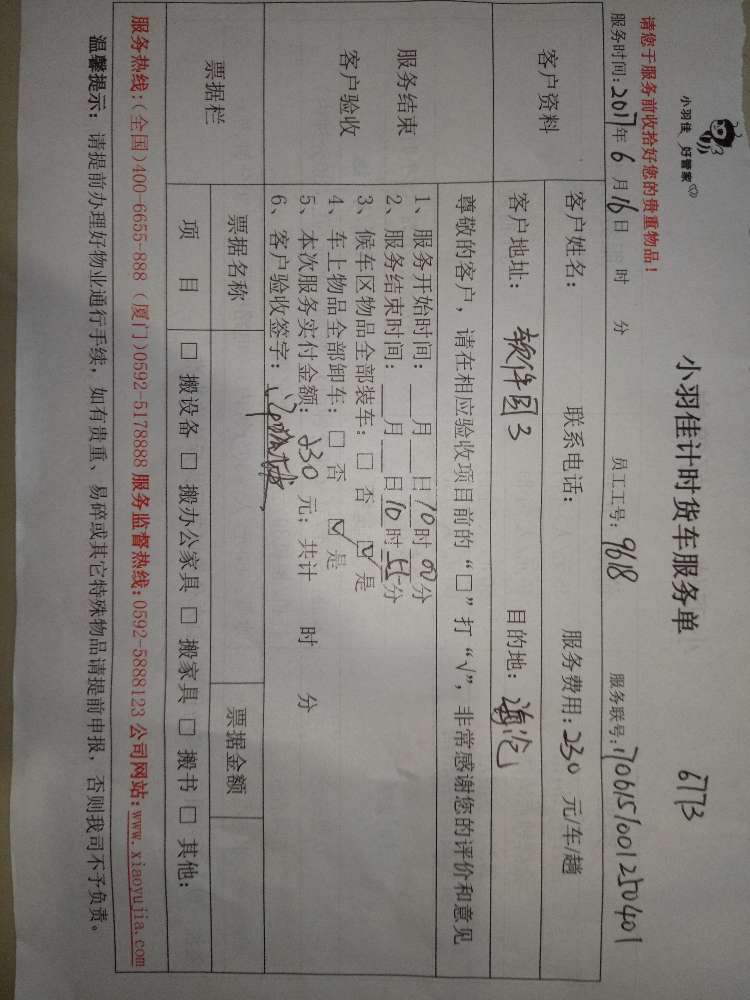 小羽佳 好管家
小羽佳计时货车服务单
6773
请您于服务前收拾好您的贵重物品！
服务时间：2017年6月16日 时 分 员工工号：9618 服务联号：1706151001250401
客户资料
客户姓名： 联系电话： 服务费用：230 元/车/趟
客户地址：软件园3 目的地：海沧
服务结束
客户验收
尊敬的客户，请在相应验收项目前的“□”打“√”，非常感谢您的评价和意见
1、服务开始时间：___月___日10时00分
2、服务结束时间：___月___日10时55分
3、候车区物品全部装车：□ 否 ☑ 是
4、车上物品全部卸车：□ 否 ☑ 是
5、本次服务实付金额：230 元；共计 时 分
6、客户验收签字：
票据栏
票据名称 票据金额
项 目 □ 搬设备 □ 搬办公家具 □ 搬家具 □ 搬书 □ 其他：
服务热线：(全国)400-6655-888 (厦门)0592-5178888 服务监督热线：0592-5888123 公司网站：www.xiaoyujia.com
温馨提示：请提前办理好物业通行手续，如有贵重、易碎或其它特殊物品请提前申报，否则我司不予负责。